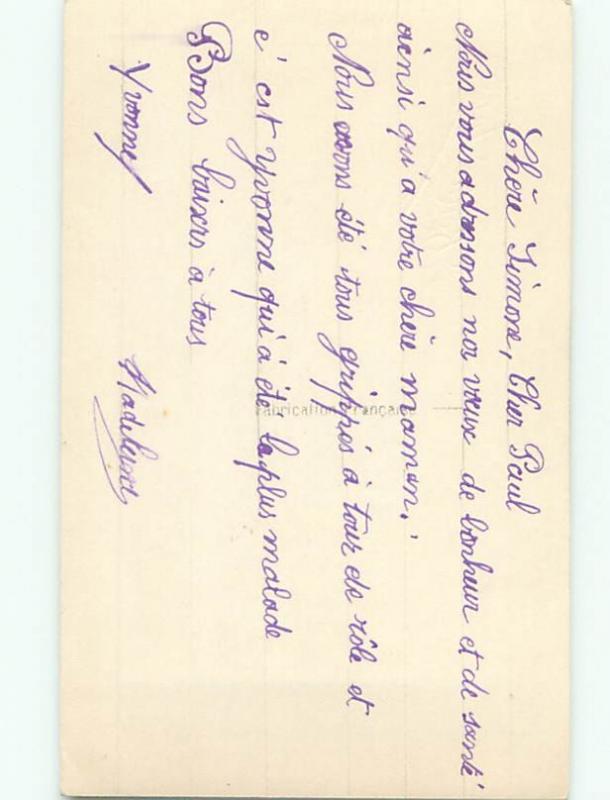 Chère Simone, Cher Paul
Nous vous adressons nos vœux de bonheur et de santé
ainsi qu'a votre chère maman.
Nous avons été tous grippés à tour de rôle et
c'est Yvonne qui à été la plus malade
Bons baisers à tous
Yvonne Madeleine
Fabrication Française